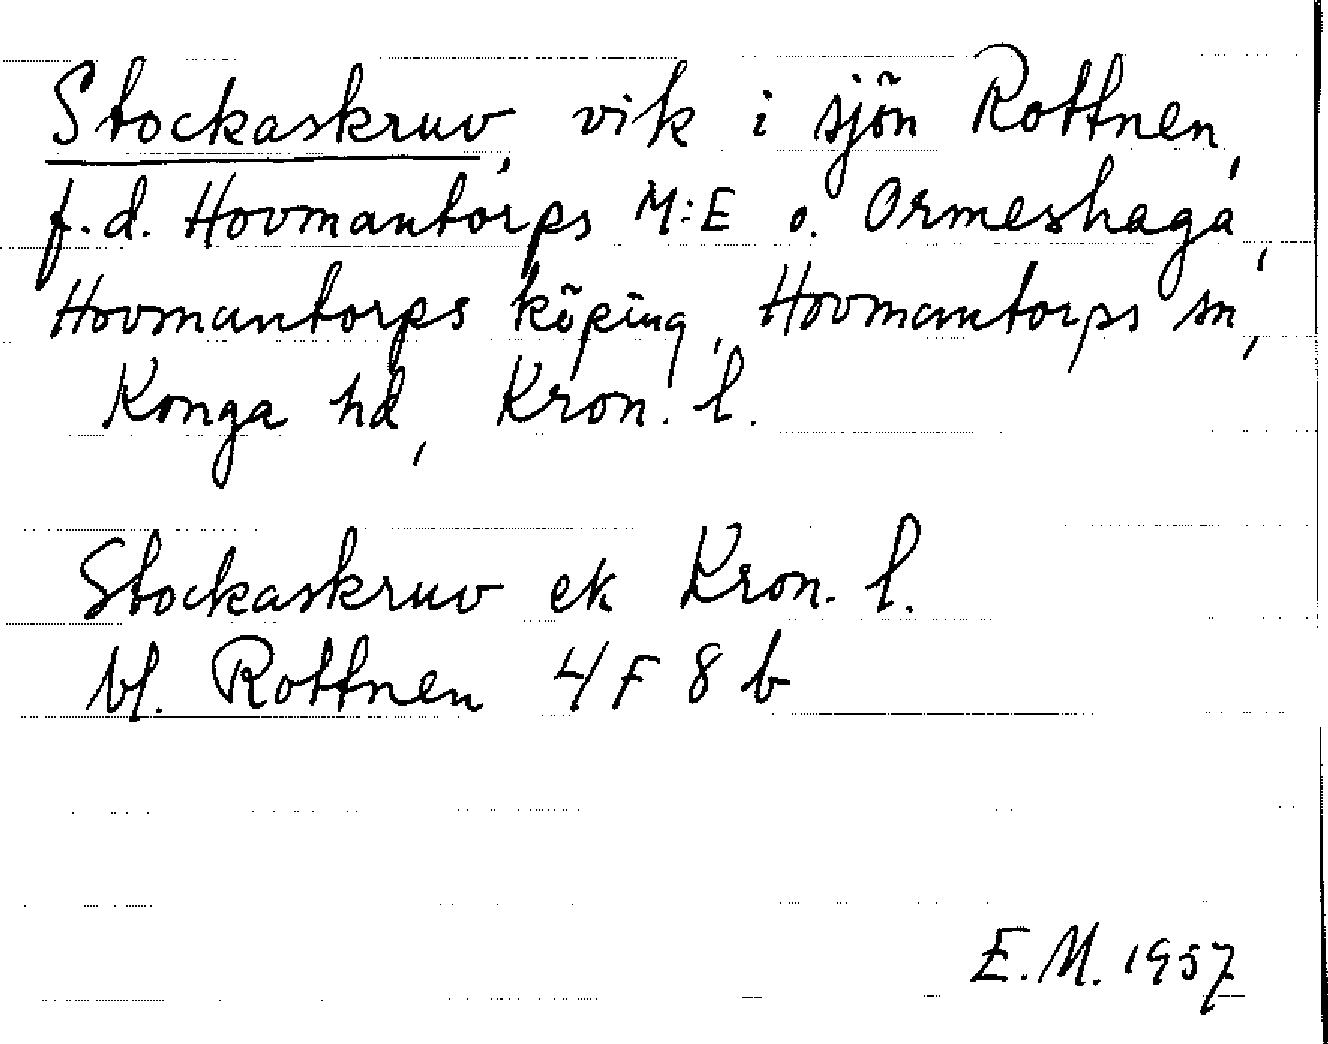 Stockaskruv, vik i sjön Rottnen,
f.d. Hovmantorps M:E o. Ormeshaga,
Hovmantorps köping, Hovmantorps sn,
Konga hd, Kron. l.
Stockaskruv ek Kron. l.
bl. Rottnen 4 F 8 b
E.M. 1957